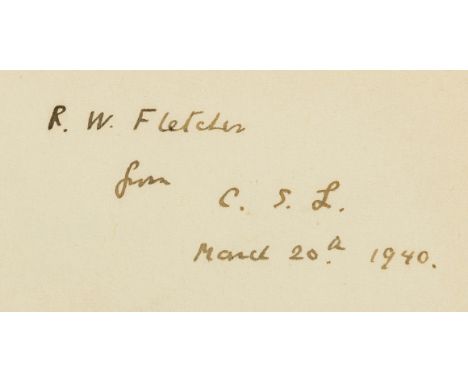 R. W. Fletcher
from
C. S. L.
March 20th 1940.